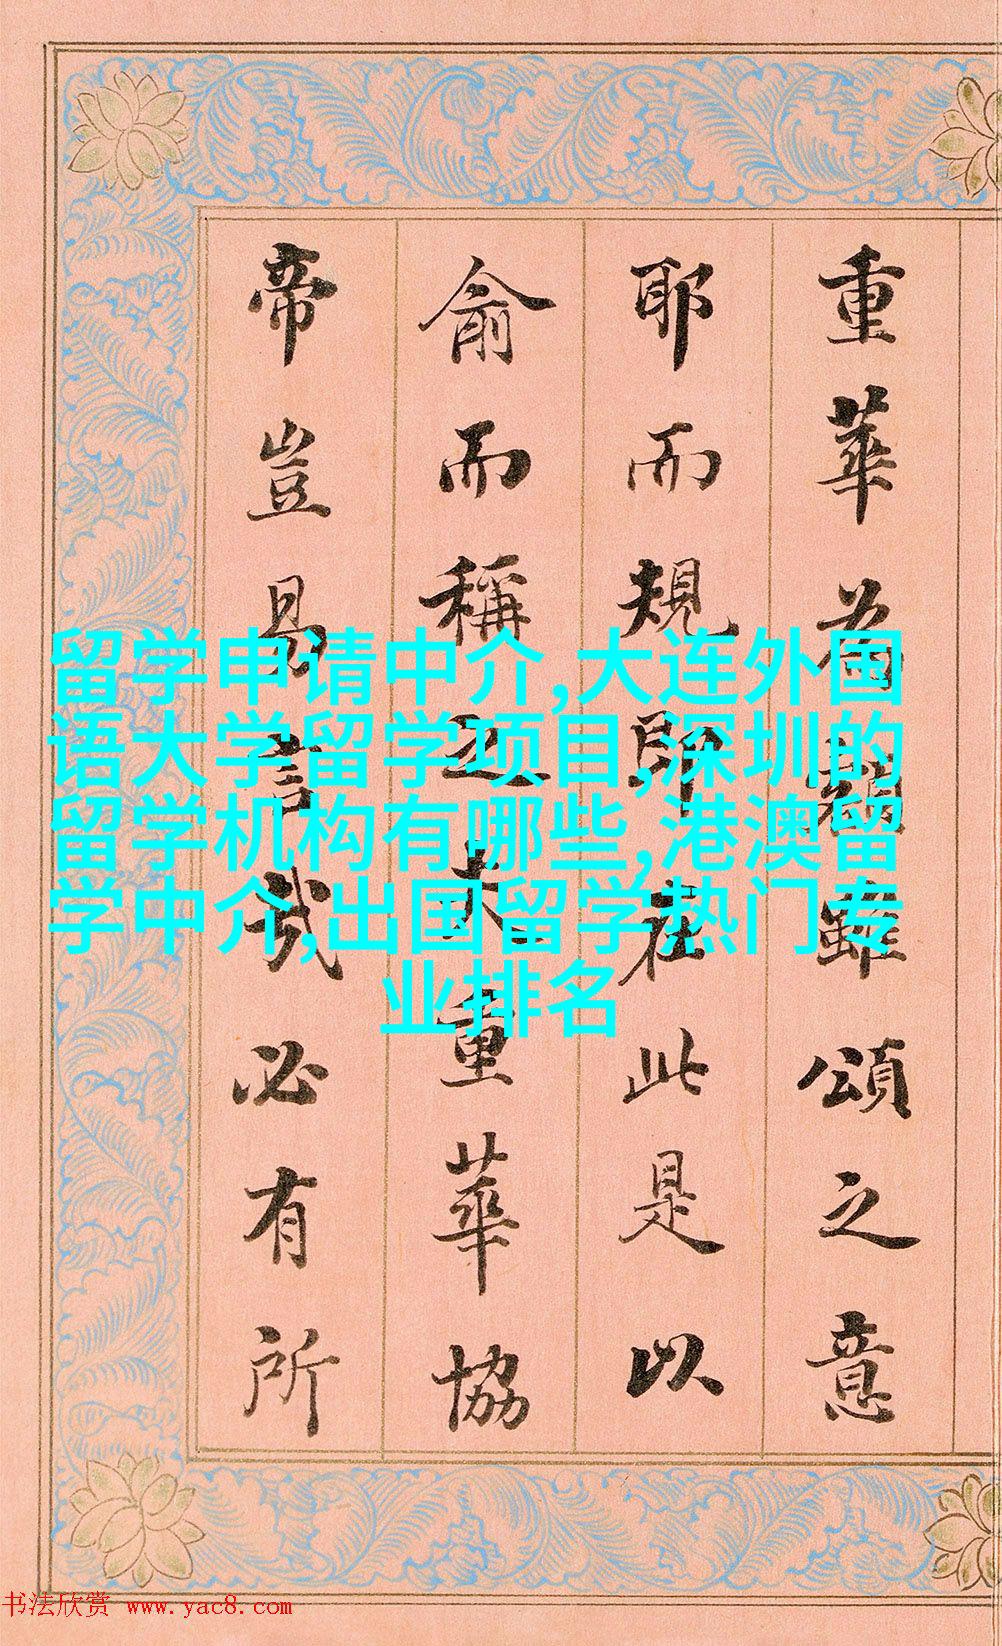 重華為額雖頌之意
耶而規即在此是以
俞而稱之夫重華協
帝豈易言哉必有所
留学申请中介,大连外国
语大学留学项目,深圳的
留学机构有哪些,港澳留
学中介,出国留学热门专
业排名
书法欣赏 www.yac8.com